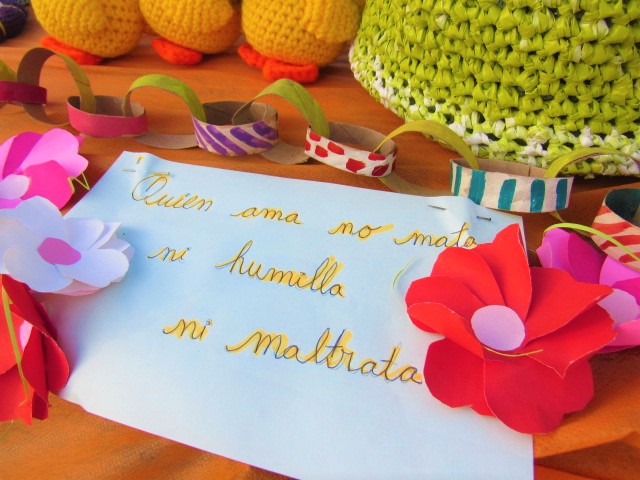 Quien ama no mata
ni humilla
ni maltrata